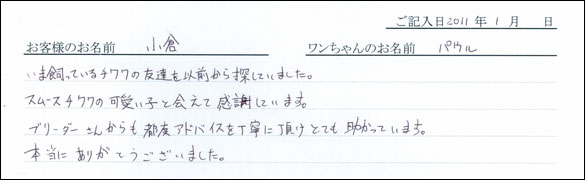 ご記入日 2011 年 1 月 日
お客様のお名前 小倉 ワンちゃんのお名前 パウル
いま飼っているチワワの友達を以前から探していました。
スムースチワワの可愛い子と会えて感謝しています。
ブリーダーさんからも都度アドバイスを丁寧に頂けとても助かっています。
本当にありがとうございました。